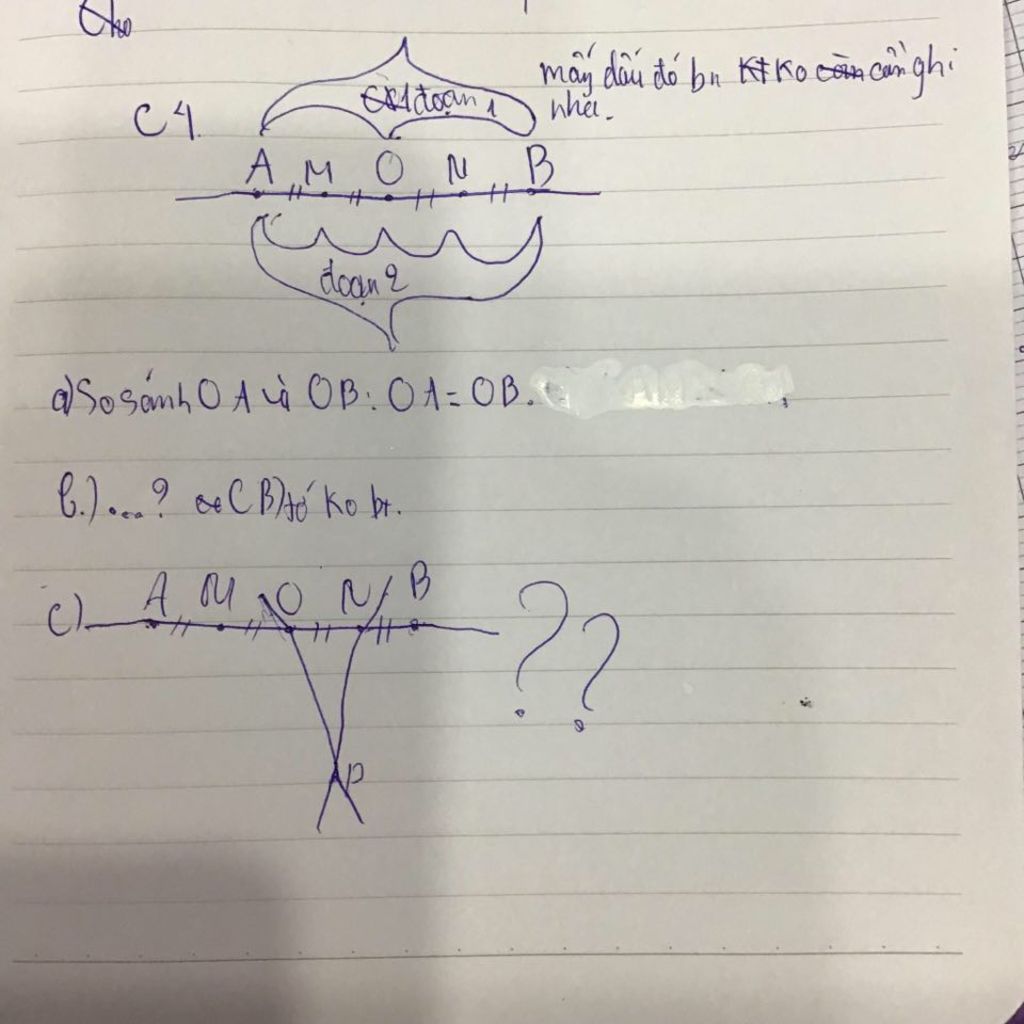 Cho
mấy dấu đó bn Kt Ko cần cần ghi
nhé.
C4. đoạn 1
A M O N B
đoạn 2
a) So sánh OA và OB: OA = OB.
b.) ...? (C B) tớ ko bt.
c) A M O N B
??
P